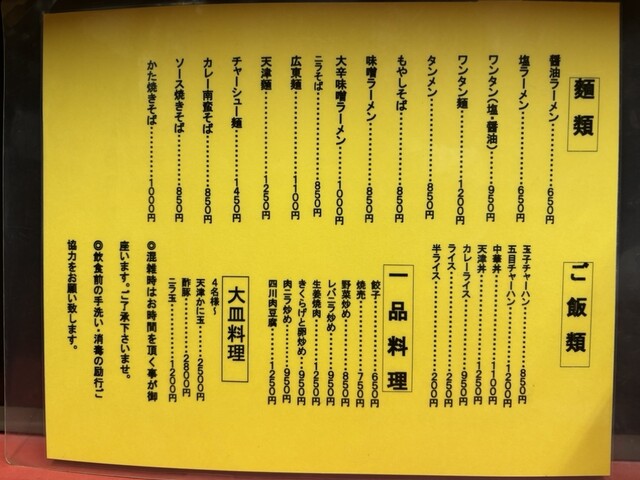 麺類
醤油ラーメン‥‥‥‥‥650円
塩ラーメン‥‥‥‥‥650円
ワンタン(塩・醤油)‥‥‥950円
ワンタン麺‥‥‥‥‥1200円
タンメン‥‥‥‥‥850円
もやしそば‥‥‥‥‥850円
味噌ラーメン‥‥‥‥‥850円
大辛味噌ラーメン‥‥‥1000円
ニラそば‥‥‥‥‥850円
広東麺‥‥‥‥‥1100円
天津麺‥‥‥‥‥1250円
チャーシュー麺‥‥‥‥1450円
カレー南蛮そば‥‥‥‥850円
ソース焼きそば‥‥‥‥850円
かた焼きそば‥‥‥‥1000円
ご飯類
玉子チャーハン‥‥‥‥850円
五目チャーハン‥‥‥‥1200円
中華丼‥‥‥‥‥1100円
天津丼‥‥‥‥‥1250円
カレーライス‥‥‥‥950円
ライス‥‥‥‥‥250円
半ライス‥‥‥‥‥200円
一品料理
餃子‥‥‥‥‥650円
焼売‥‥‥‥‥750円
野菜炒め‥‥‥‥850円
レバニラ炒め‥‥‥‥950円
生姜焼肉‥‥‥‥1250円
きくらげと卵炒め‥‥950円
肉ニラ炒め‥‥‥‥950円
四川肉豆腐‥‥‥‥1250円
大皿料理
4名様〜
天津かに玉‥‥‥2500円
酢豚‥‥‥‥‥2800円
ニラ玉‥‥‥‥‥1200円
◎混雑時はお時間を頂く事が御
座います。ご了承下さいませ。
◎飲食前の手洗い・消毒の励行ご
協力をお願い致します。